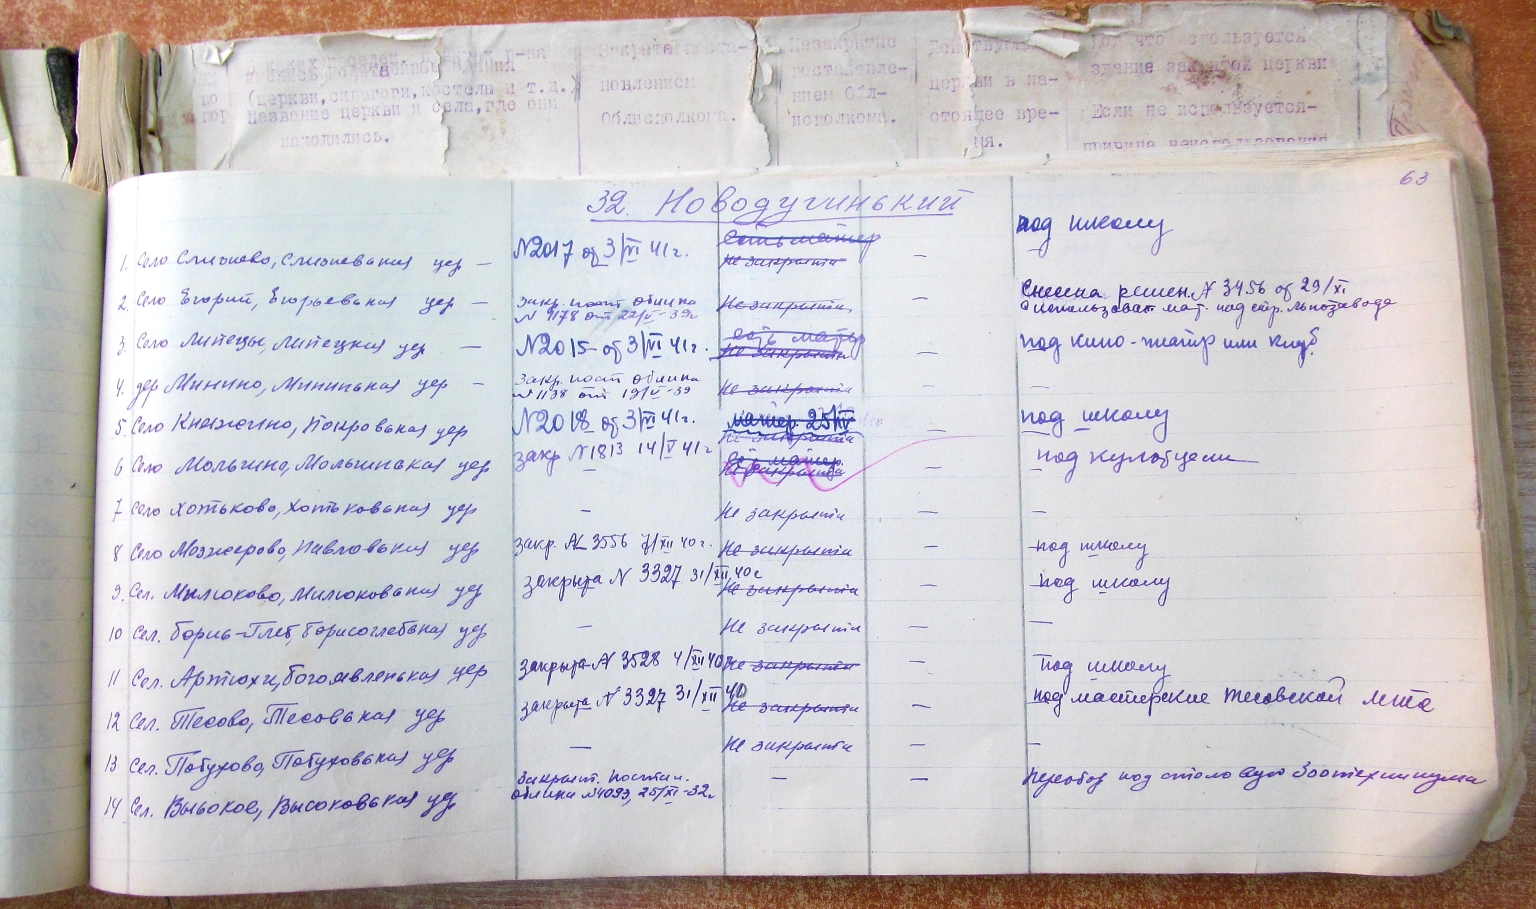 (церкви, синагоги, костелы и т.д.)
Название церкви и села, где они
находились.
Закрыта поста-
новлением
Облисполкома.
Незакрытые
постановле-
нием Обл-
исполкома.
Действующие
церкви в на-
стоящее вре-
мя.
Под что используется
здание закрытой церкви
Если не используется-
причина неиспользования
63
32. Новодугинький
1. Село Слизнево, Слизневская цер —
№2017 от 3/VI 41 г.
есть матер
не закрыта
—
под школу
—
2. Село Егорий, Егорьевская цер —
Закр. пост облика
№ 1178 от 22/V-39г
Не закрыта
—
Снесена решен. № 3456 от 29/XI
использован мат. под стр. льнозавода
3. Село Липецы, Липецкая цер —
№2015 от 3/VI 41 г.
есть матер
не закрыта
—
под кино-театр или клуб.
4. дер Минино, Мининская цер —
Закр. пост облика
№1138 от 19/V-39
Не закрыта
—
—
5. Село Княжино, Покровская цер
№2018 от 3/VI 41 г.
матер. 25/IV
Не закрыта
—
под школу
6 Село Мольгино, Мольгинская цер
закр №1813 14/V 41 г
—
есть матер.
Не закрыта
—
под культцели
7 Село Хотьково, Хотьковская цер
—
Не закрыта
—
—
8 Село Мозжерово, Павловская цер
закр. № 3556 7/XII 40 г.
Не закрыта
—
под школу
9. Сел. Милюково, Милюковская цер
закрыта № 3327 31/XII 40 г
Не закрыта
—
под школу
10 Сел. Борис-Глеб, Борисоглебская цер
—
Не закрыта
—
—
11 Сел. Артюхи, Богоявленская цер
закрыта № 3528 4/XII 40 г
Не закрыта
—
под школу
12 Сел. Тесово, Тесовская цер
закрыта № 3327 31/XII 40
Не закрыта
—
под мастерские Тесовской
13 Сел. Потухово, Потуховская цер
—
Не закрыта
—
—
14 Сел. Высокое, Высоковская цер
Закрыт. постан.
облика №4093, 25/XI-32г
—
—
Переобор под столовую Зоотехникума